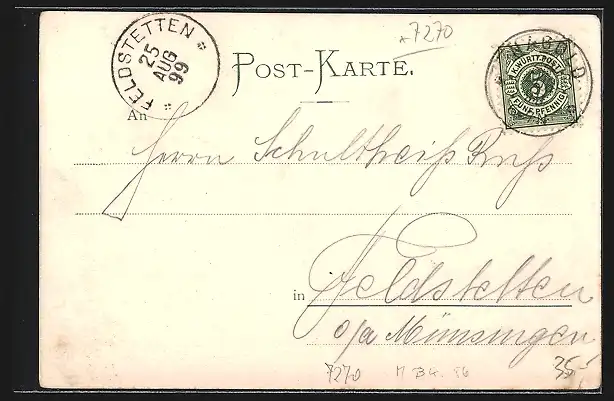 FELDSTETTEN
25
AUG
99
7270
POST-KARTE.
NAGOLD.
K.WÜRTT.POST
5
FÜNF PFENNIG
An
Herrn Schultheiß Ruß
in Feldstetten
o/a Münsingen
7270
35